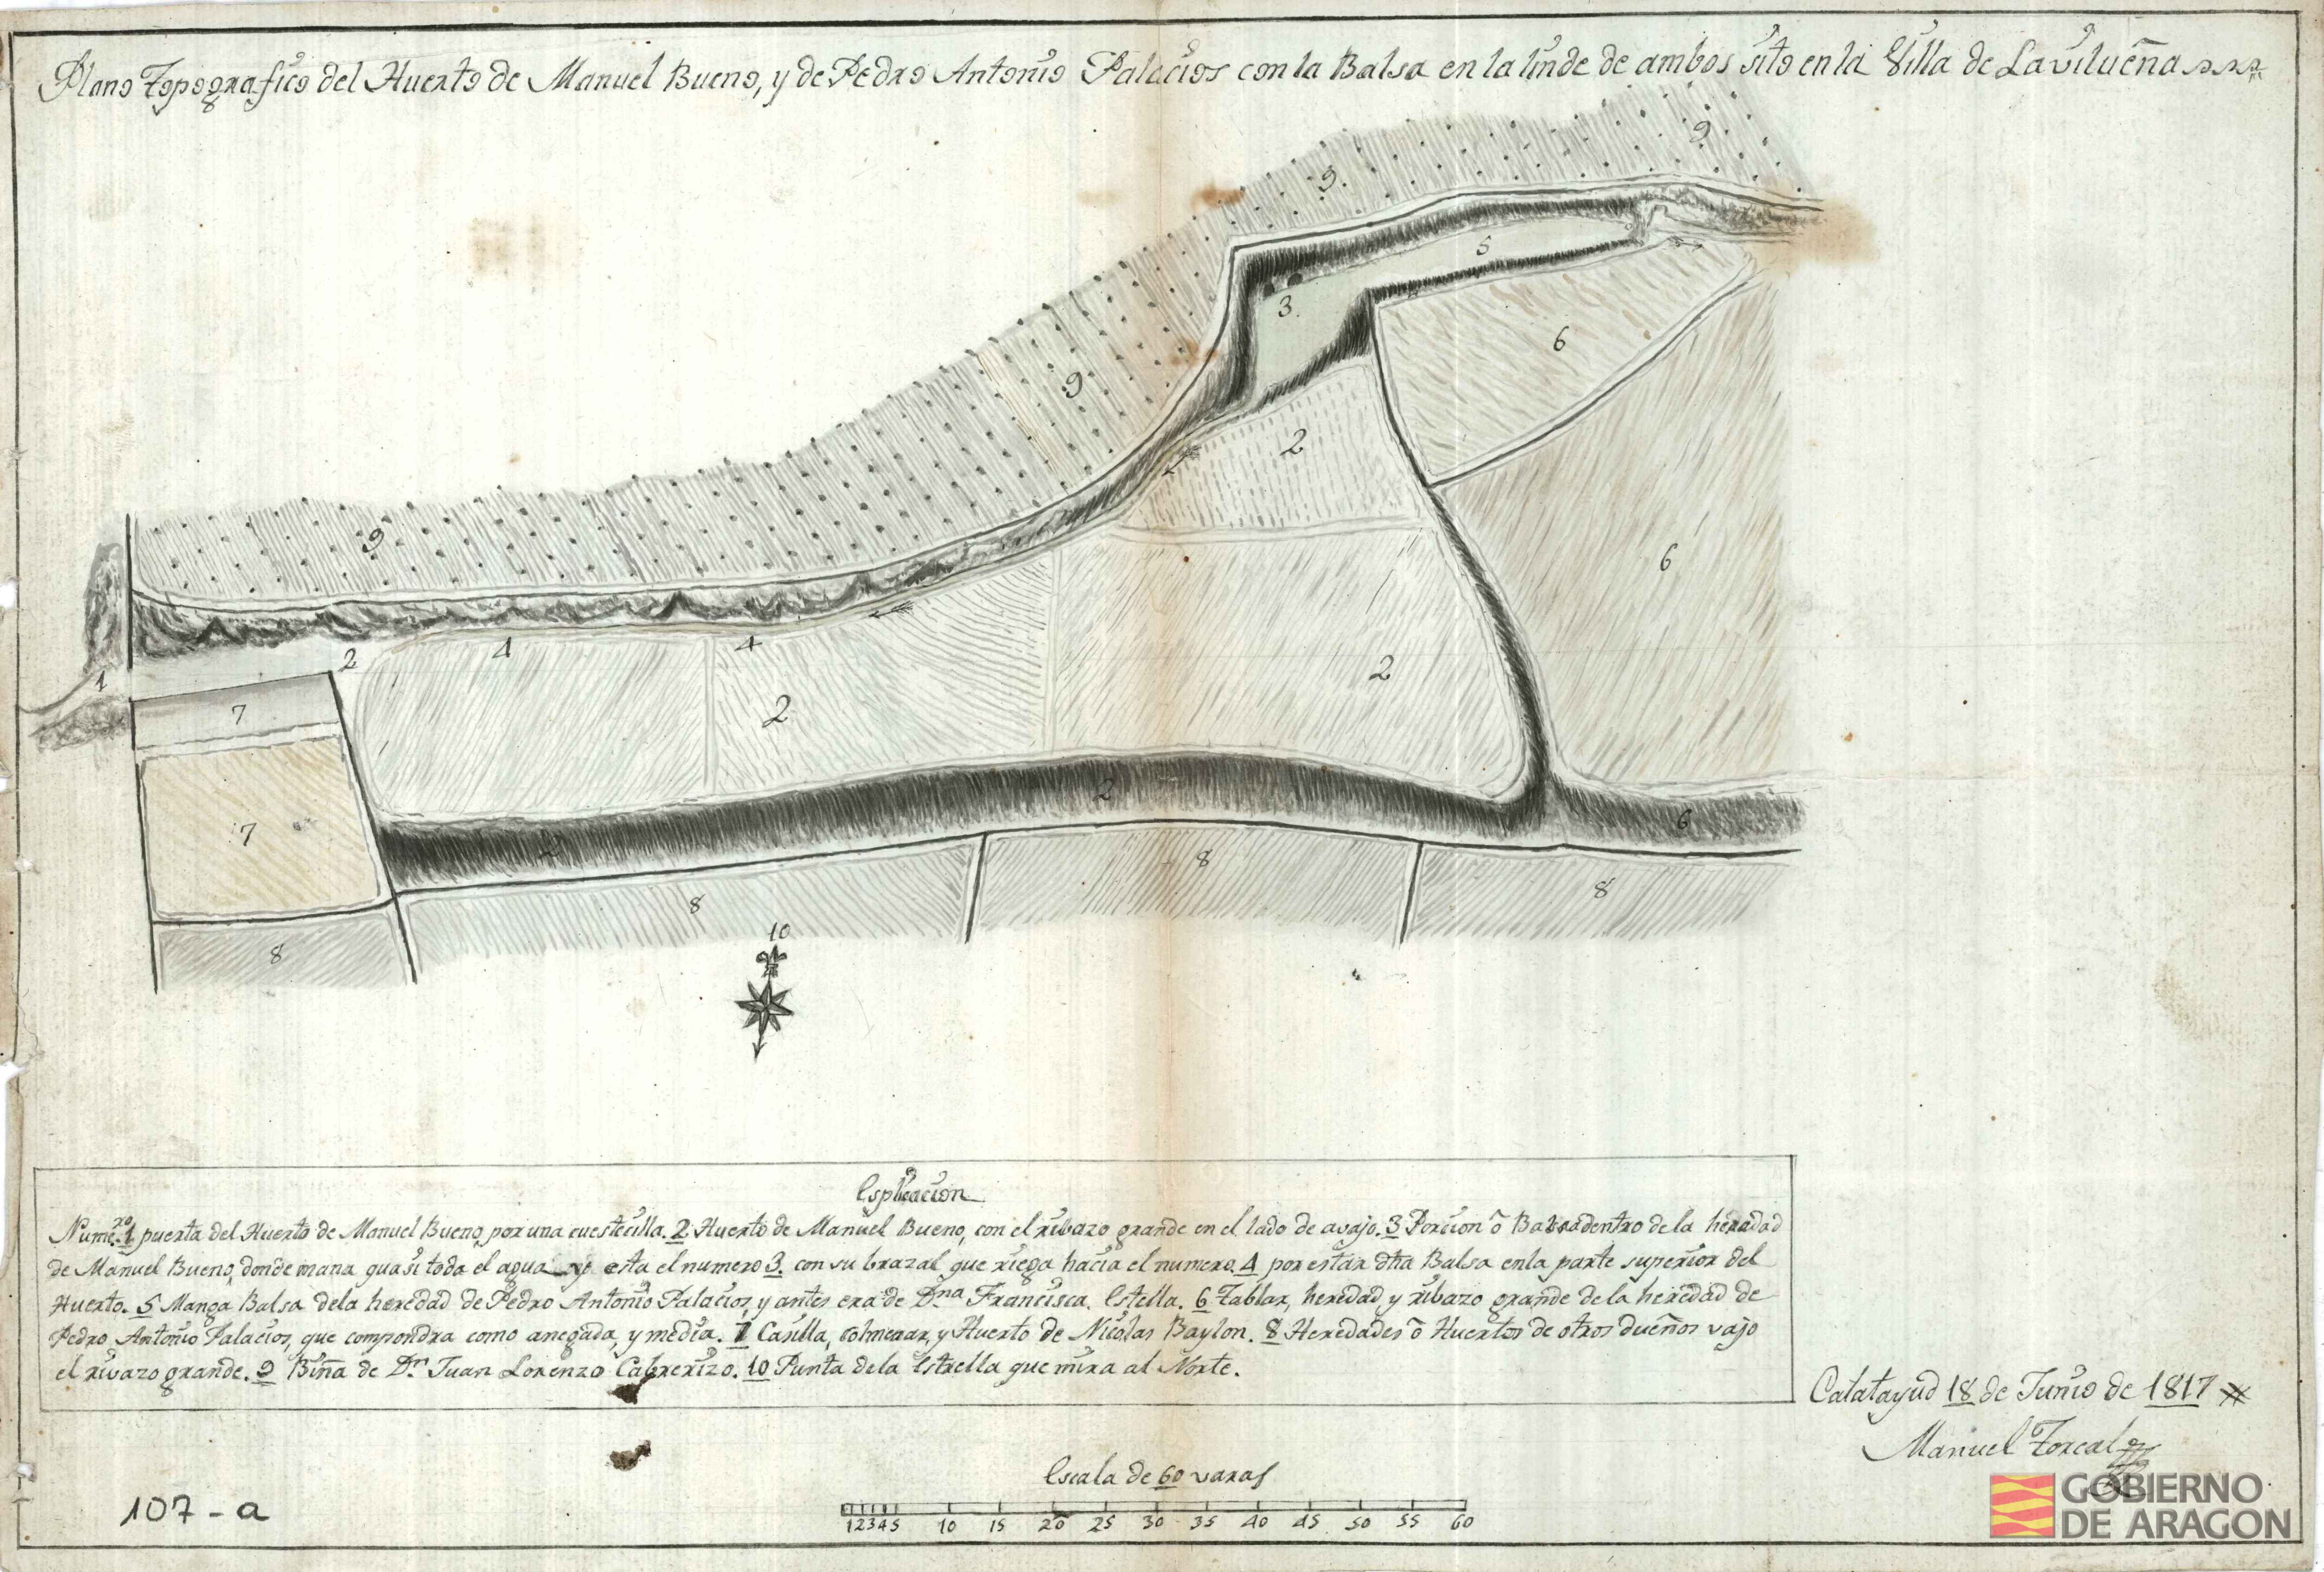 Plano Topografico del Huerto de Manuel Bueno, y de Pedro Antonio Palacios con la Balsa en la linde de ambos sito en la Villa de La vilueña
9
9.
5
3.
6
9
2
9
6
2
4
4
2
1
2
7
2
7
2
6
8
8
8
8
10
Esplicacion
Nume.ro 1 puerta del Huerto de Manuel Bueno, por una cuestecilla. 2 Huerto de Manuel Bueno, con el ribazo grande en el lado de avajo. 3 Porcion ô Balsa dentro de la heredad
de Manuel Bueno, donde mana quasi toda el agua y esta el numero 3. con su brazal que riega hacia el numero. 4 por estar dha Balsa en la parte superior del
Huerto. 5 Manga Balsa dela heredad de Pedro Antonio Palacios, y antes era de Dna Francisca Estella. 6 Tablar, heredad y ribazo grande de la heredad de
Pedro Antonio Palacios, que compondra como anegada, y media. 7 Casilla, colmenar, y Huerto de Nicolas Baylon. 8 Heredades ô Huertos de otros dueños vajo
el rivazo grande. 9 Biña de Dn. Juan Lorenzo Cabrerizo. 10 Punta dela Estrella que mira al Norte.
Calatayud 18 de Junio de 1817
Manuel Torcal
Escala de 60 varas
1 2 3 4 5 10 15 20 25 30 35 40 45 50 55 60
107-a
GOBIERNO
DE ARAGON